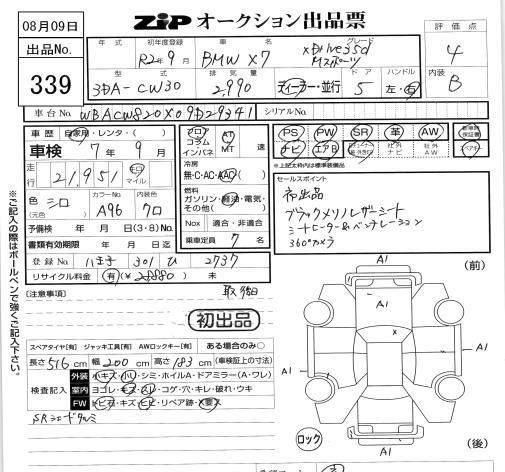 08月09日
出品No.
339
ZIP オークション出品票
年式 初年度登録 車名 グレード
R2年9月 BMW X7 xDrive35d Mスポーツ
評価点
4
内装
B
型式 排気量 ドア ハンドル
3DA-CW30 2,990 ディーラー・並行 5 左・右
車台No. WBACW820X09D29341 シリアルNo.
車歴 自家用・レンタ・( )
車検 7年9月
走行 21,951 キロ マイル
色 シロ (元色) カラーNo. A96 内装色 クロ
予備検 年 月 日(3・8)No.
書類有効期限 年 月 日迄
登録No. 301 ひ 2737
リサイクル料金 有(¥ ) 未
フロア コラム インパネ AT MT 速
冷房
無・C・AC・AAC
燃料
ガソリン・軽油・電気・その他( )
Nox 適合・非適合
乗車定員 7名
PS PW SR 革 AW 新車時保証書
ナビ エアB 社外ナビ 社外AW
※上記太枠内は標準装備品
セールスポイント
初出品
ブラックメリノレザーシート
シートヒーター&ベンチレーション
360°カメラ
[注意事項]
取説
初出品
スペアタイヤ[有] ジャッキ工具[有] AWロックキー[有] ある場合のみ○
長さ516cm 幅200cm 高さ183cm (車検証上の寸法)
検査記入
外装 小キズ・小凹・シミ・ホイルA・ドアミラー(A・ワレ)
室内 ヨゴレ・キズ・スレ・コゲ・穴・キレ・破れ・ウキ
FW トビ石・キズ・ヒビ・リペア跡・X要
SRシェードタルミ
※ご記入の際はボールペンで強くご記入下さい。
A1
(前)
A1
X
A1
A1
A1
A1
ロック
(後)